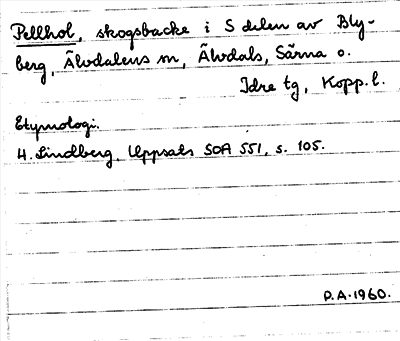 Pellhol, skogsbacke i S delen av Bly-
berg, Älvdalens sn, Älvdals, Särna o.
Idre tg, Kopp. l.
Etymologi.
H. Lindberg, Uppsats SOA 551, s. 105.
P.A. 1960.